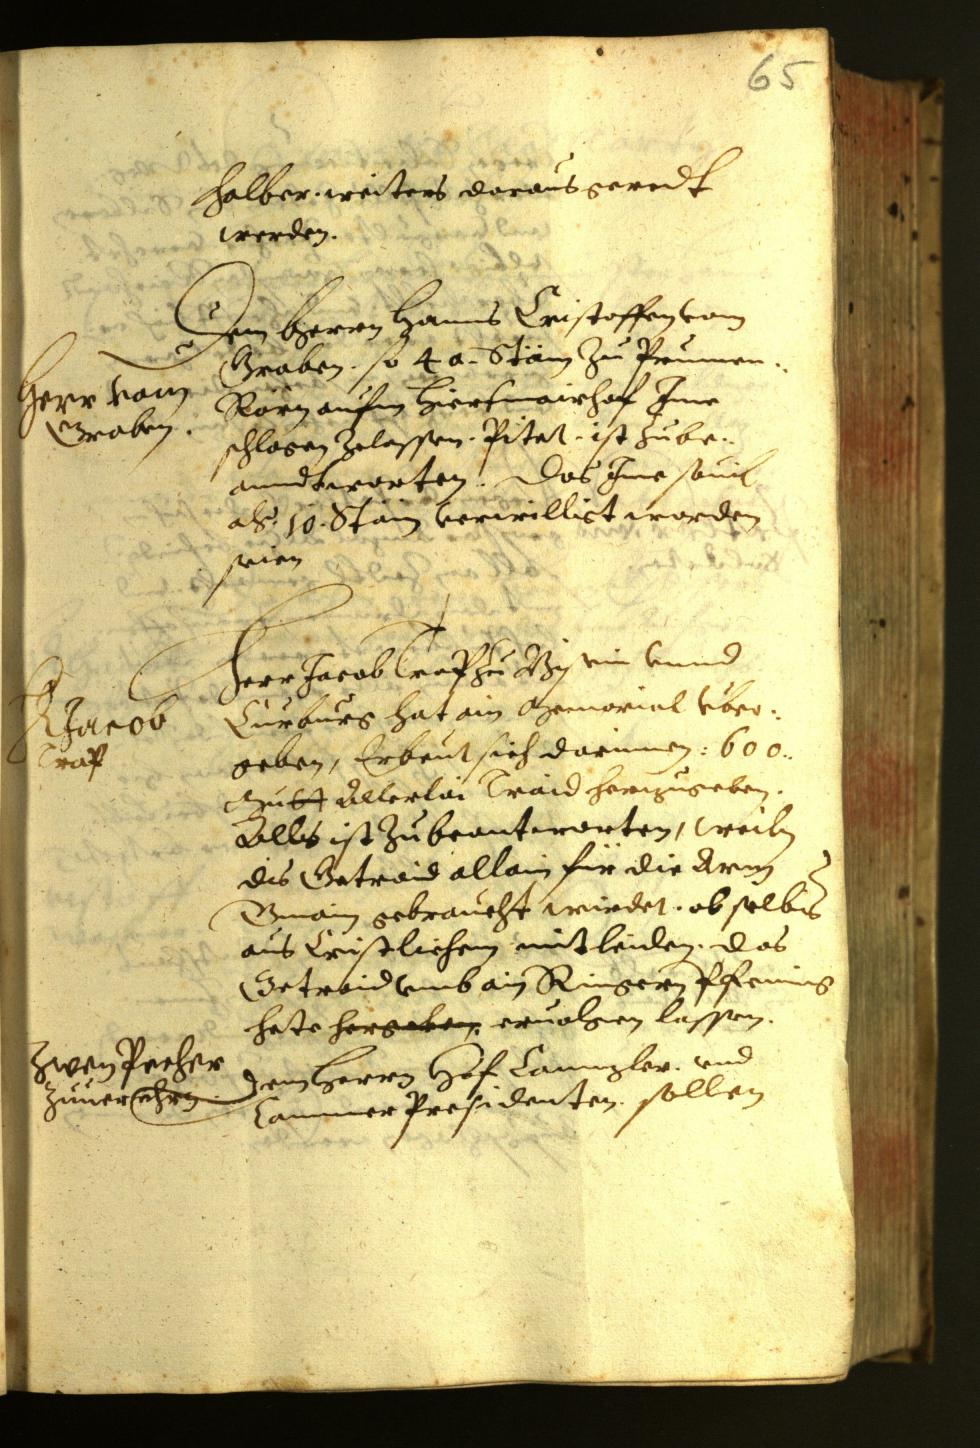 65
halber. weiters daraus geredt
werden.
Herr vom
Graben.
Dem Herrn Hanns Cristoffen vom
Graben. so 40. Stäm zu Prunnen:
Rörn aufm Hierſmairhof Ime
schlagen zelassen. Pitet. ist zube:
anndtworten. Das Ime souil
als. 10. Stäm verwilligt worden
seien
H Jacob
Trap
Herr Jacob Trap zu Bysein vnnd
Curburg hat ain Memorial vber:
geben, Erbeut sich darinnen: 600:
Mutt Allerlai Traid herzugeben.
Alls ist zubeantworten, weiln
dis Getraid allain für die Arm
Gmain gebraucht wirdet. ob selbis
aus Cristlichem mitleiden. das
Getraid vmb ain Ringern Pfening
hete hergeben eruolgen lassen.
Zwen Pecher
zuuerehrn
Dem Herrn Hof Cannzler. vnd
Cammer Presidenten. sollen